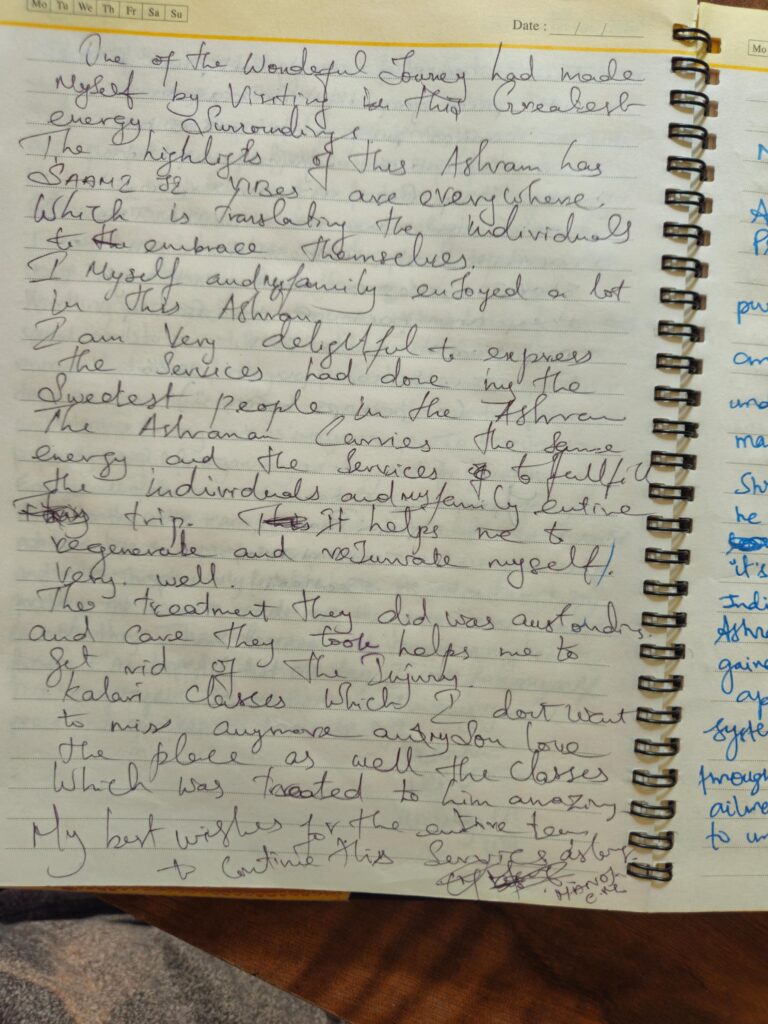 Mo Tu We Th Fr Sa Su
Date : / /
One of the Wondeful Journey had made
Myself by Visiting in this Greatest
energy Surroundings
The highligts of this Ashram has
VIBES are everywhere.
Which is translating the individuals
to the embrace themselves.
I Myself and my family enjoyed a lot
in this Ashram
I am Very delightful to express
the Services had done by the
Sweetest people in the Ashram
The Carries the same
energy and the Services to fullfill
the individuals and my family entire
trip. It helps me to
regenerate and myself.
very well
The treatment they did was
and care they took helps me to
get rid of the Injury.
Kalari Classes Which I dont want
to miss anymore and my Son love
the place as well the classes
Which was treated to him amazing
My best wishes for the entire team
to Continue this Services
MANOJ
Mo